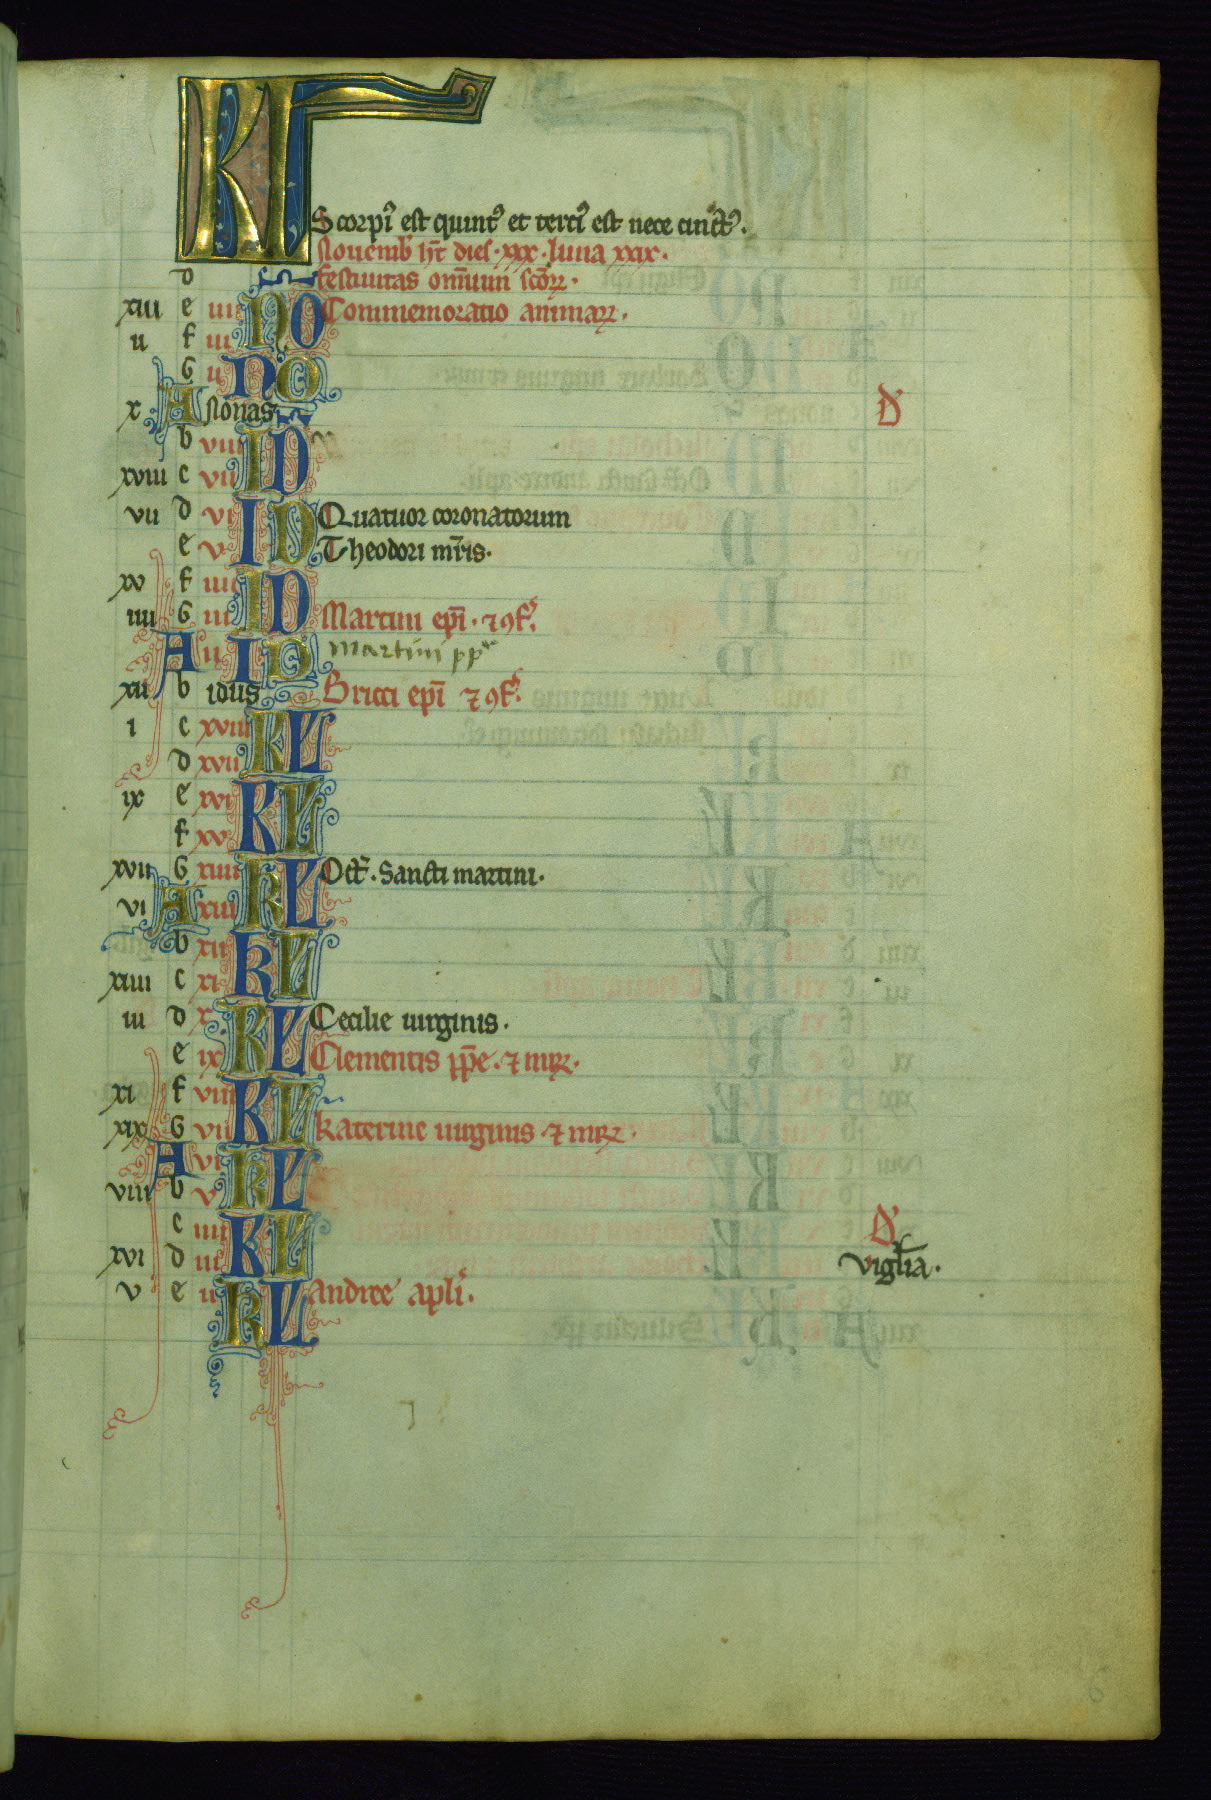 KL
Scorpi᷑ est quint᷒ et terci᷒ est nece cinct᷒.
Nouemb̄ ht̄ dies·xxx·luna xxix·
d festiuitas om̄ium sc̄orꝝ·
xiii e iiii NO Commemoratio animarꝝ·
ii f iii
G ii NO
x A Nonas D᷒
b viii ID
xviii c vii
vii d vi ID Quatuor coronatorum
e v Theodori mr̄is·
xv f iiii ID
iiii G iii Martini epī·⁊ ꝯf᷒.
A ii ID Martini pp̄
xii b idus Bricci epī ⁊ ꝯf᷒.
i c xviii KL
d xvii
ix e xvi KL
f xv
xvii G xiiii KL Oct̄·Sancti martini·
vi A xiii
b xii KL
xiiii c xi
iii d x KL Cecilie uirginis·
e ix Clementis pp̄e·⁊ mr̄ꝝ·
xi f viii KL
xix G vii Katerine uirginis·⁊ mr̄ꝝ·
A vi KL
viii b v
c iiii KL D᷒
xvi d iii vigl̄ia·
v e ii KL Andree apl̄i·